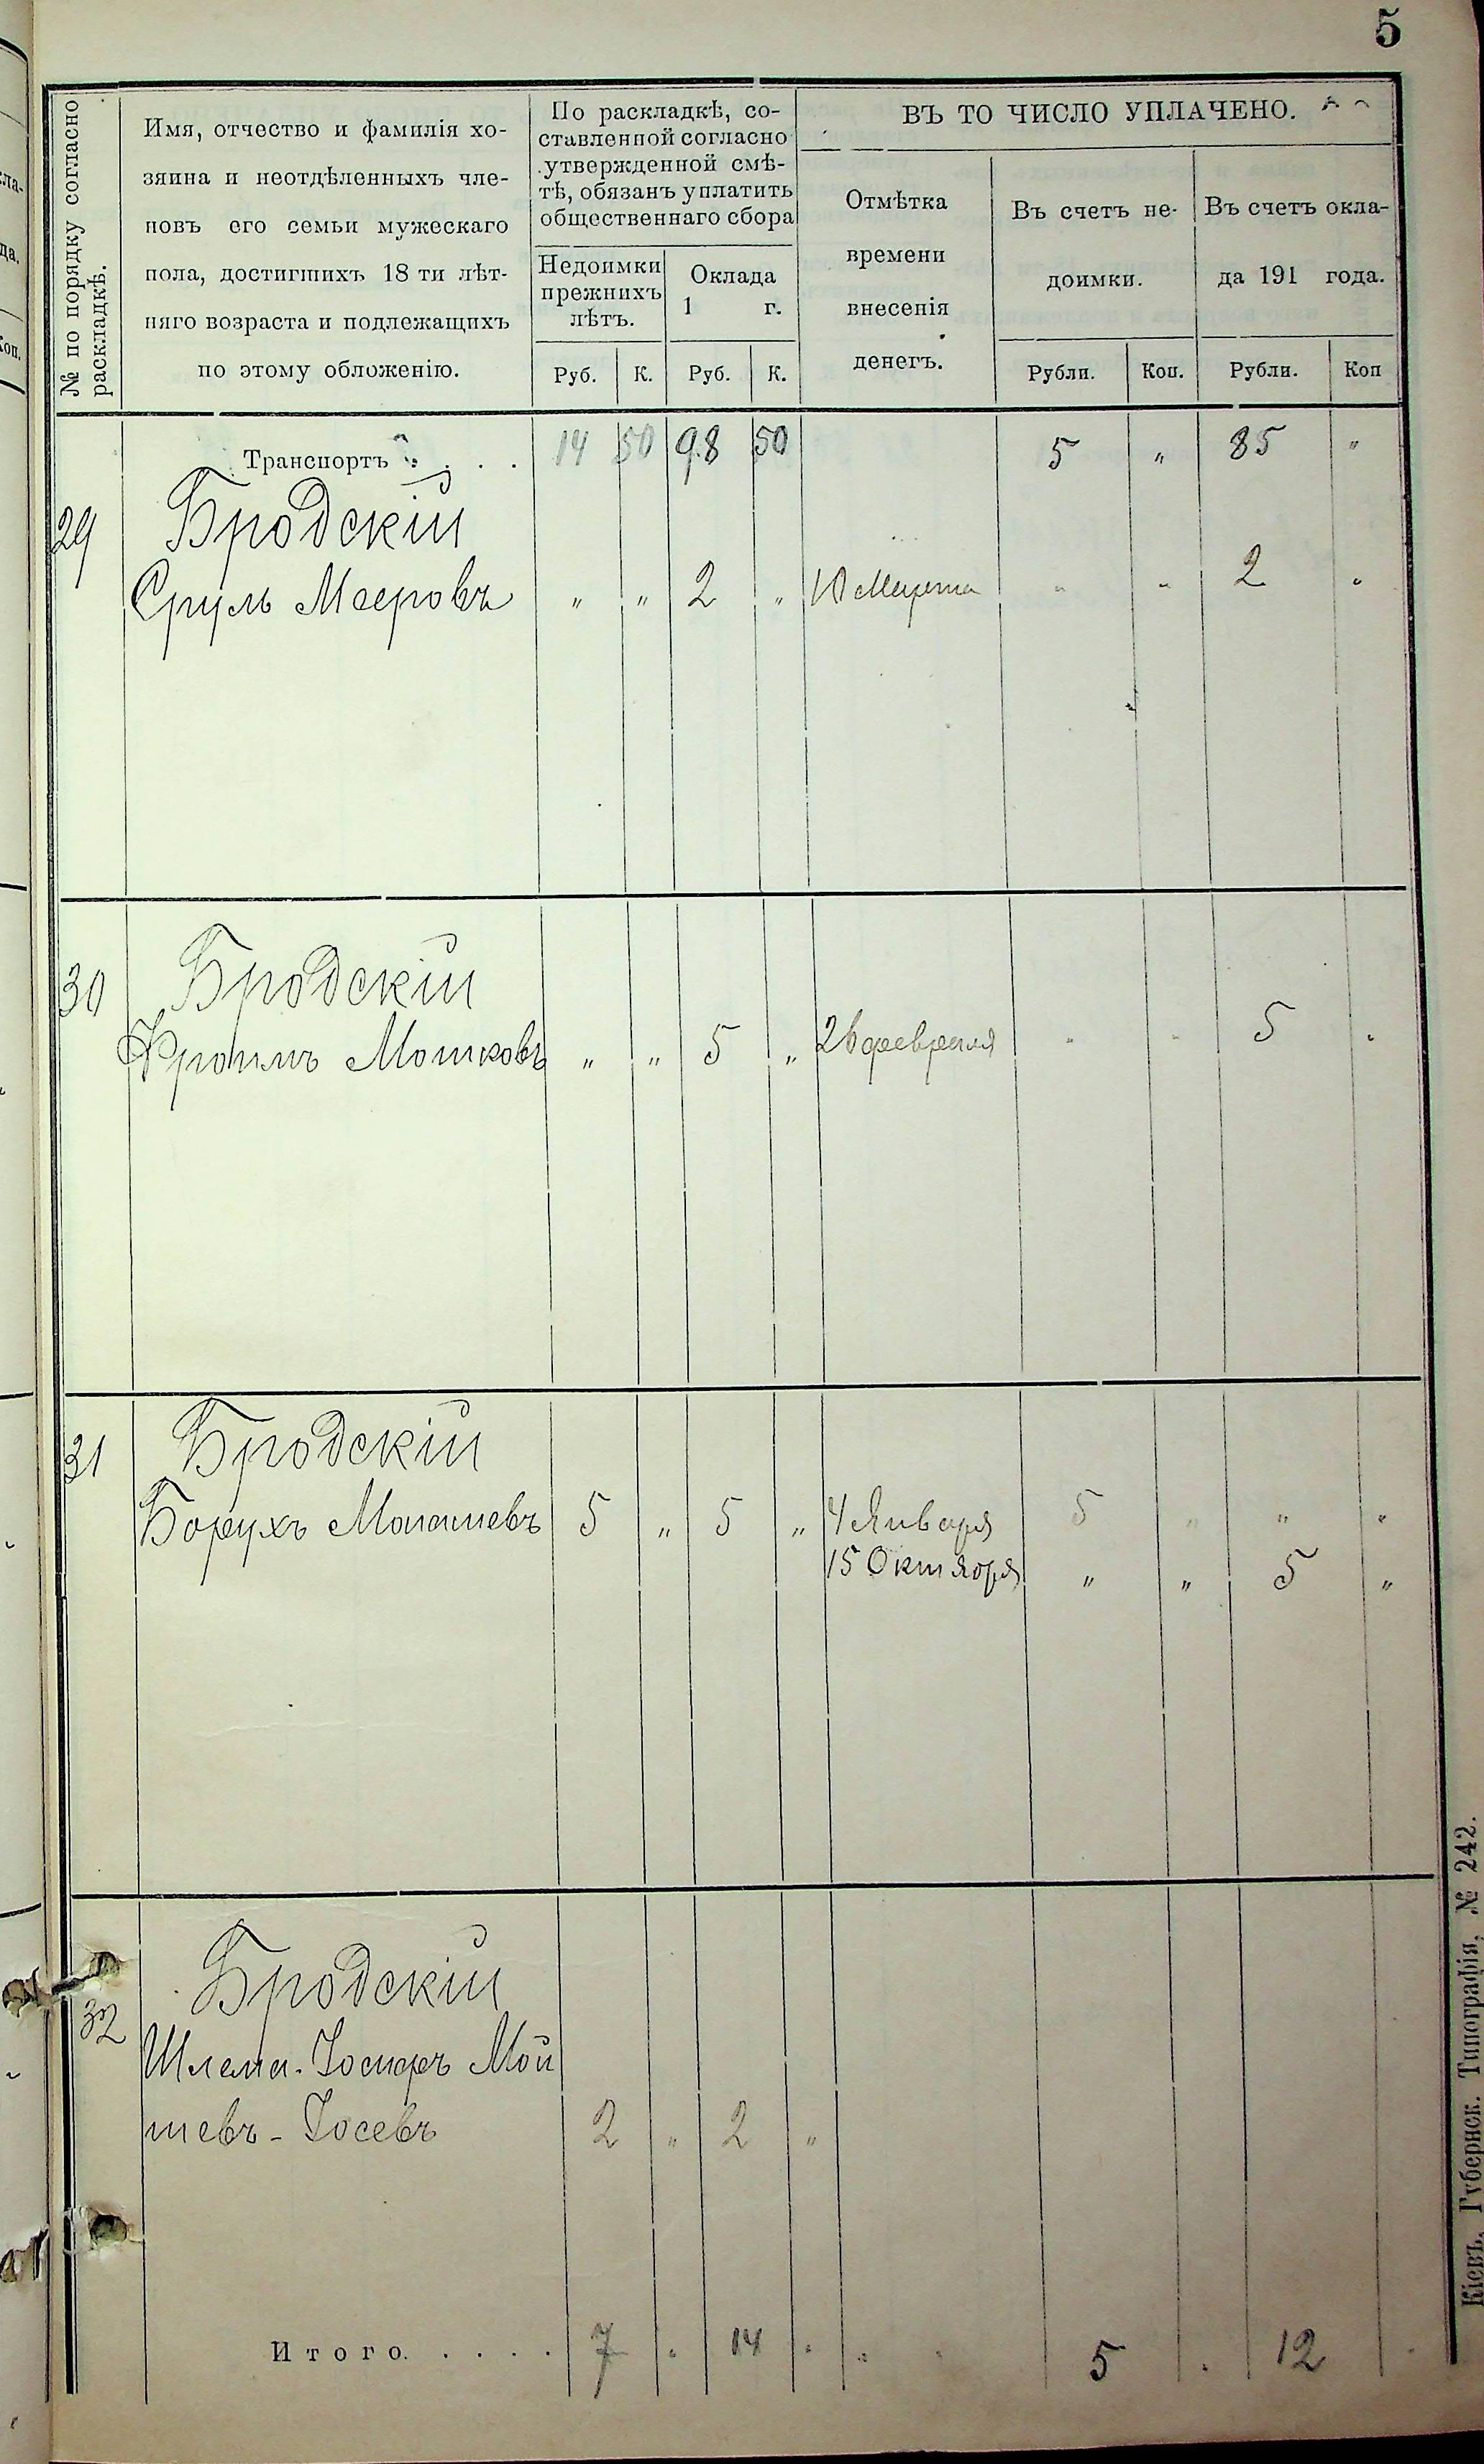 5
№ по порядку согласно
раскладкѣ.
Имя, отчество и фамилія хо-
зяина и неотдѣленныхъ чле-
новъ его семьи мужескаго
пола, достигшихъ 18 ти лѣт-
няго возраста и подлежащихъ
по этому обложенію.
По раскладкѣ, со-
ставленной согласно
утвержденной смѣ-
тѣ, обязанъ уплатить
общественнаго сбора
Недоимки
прежнихъ
лѣтъ.
Оклада
1 г.
Руб. К. Руб. К.
ВЪ ТО ЧИСЛО УПЛАЧЕНО.
Отмѣтка
времени
внесенія
денегъ.
Въ счетъ не-
доимки.
Въ счетъ окла-
да 191 года.
Рубли. Коп. Рубли. Коп
Транспортъ . . . 14 50 98 50 5 " 85 "
29 Бродскій
Сруль Маеровъ " " 2 " 10 Марта " " 2 "
30 Бродскій
Фроимъ Мошковъ " " 5 " 26 февраля " " 5 "
31 Бродскій
Борухъ Монашевъ 5 " 5 " 4 Января 5 " " "
15 Октября " " 5 "
32 Бродскій
Шлема-Іосифъ Мой
шевъ-Іосевъ 2 " 2 "
Итого. . . . . 7 " 14 " 5 . 12
Кіевъ. Губернск. Типографія, № 242.